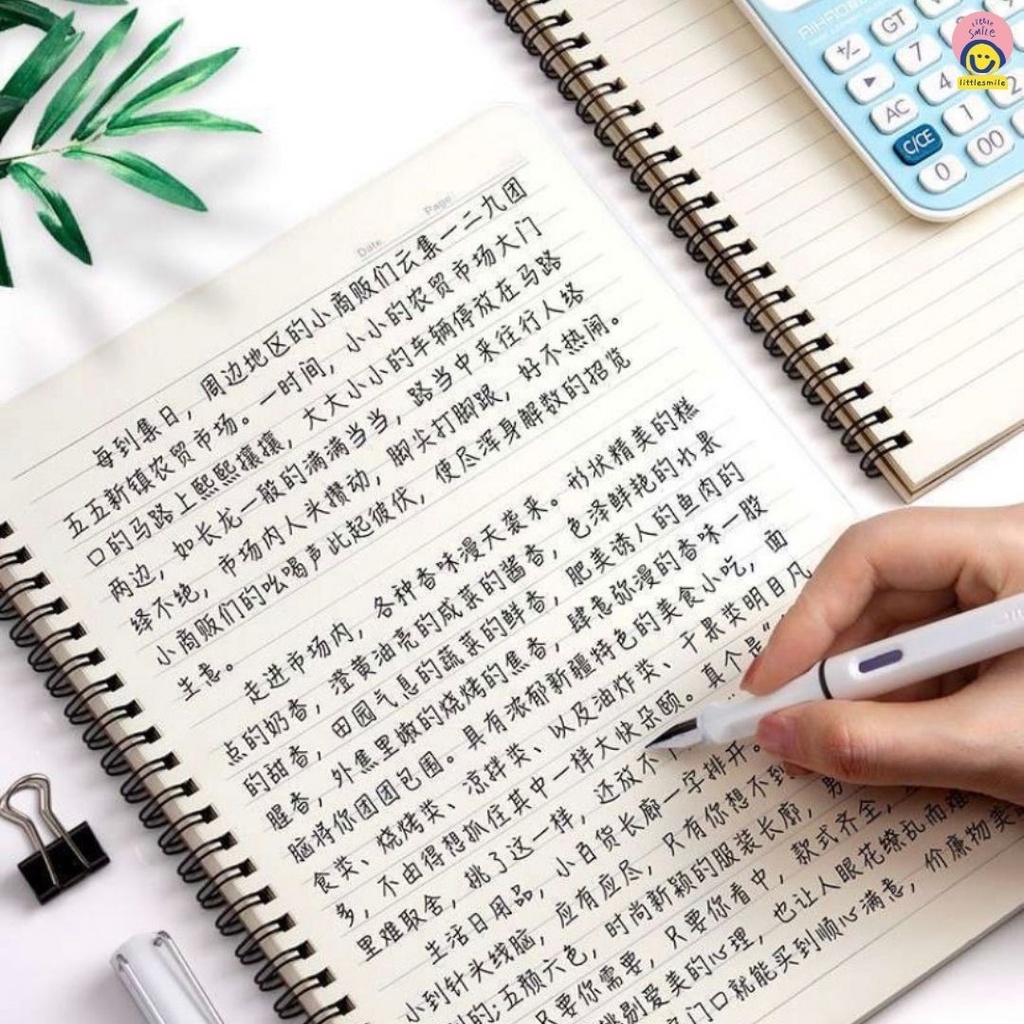 Date Page
每到集日，周边地区的小商贩们云集一二九团
五五新镇农贸市场。一时间，小小的农贸市场大门
口的马路上熙熙攘攘，大大小小的车辆停放在马路
两边，如长龙一般的满满当当，路当中来往行人络
绎不绝，市场内人头攒动，脚尖打脚跟，好不热闹。
小商贩们的吆喝声此起彼伏，使尽浑身解数的招览
生意。
走进市场内，各种香味漫天袭来。形状精美的糕
点的奶香，澄黄油亮的咸菜的酱香，色泽鲜艳的水果
的甜香，田园气息的蔬菜的鲜香，肥美诱人的鱼肉的
腥香，外焦里嫩的烧烤的焦香，肆意弥漫的香味一股
脑将你团团包围。具有浓郁新疆特色的美食小吃，面
食类、烧烤类、凉拌类、以及油炸类、干果类明目凡
多，不由得想抓住其中一样大快朵颐。真个是“
里难取舍，挑了这一样，还放不
生活日用品，小百货长廊一字排开。
小到针头线脑，应有应尽，只有你想不到
的;五颜六色，时尚新颖的服装长廊，男
只要你需要，只要你看中，款式齐全，
挑剔爱美的心理，也让人眼花缭乱而难
门口就能买到顺心满意，价廉物美
+/- GT
▶ 7
AC 4
C/CE 1 2
0 00
little smile
littlesmile